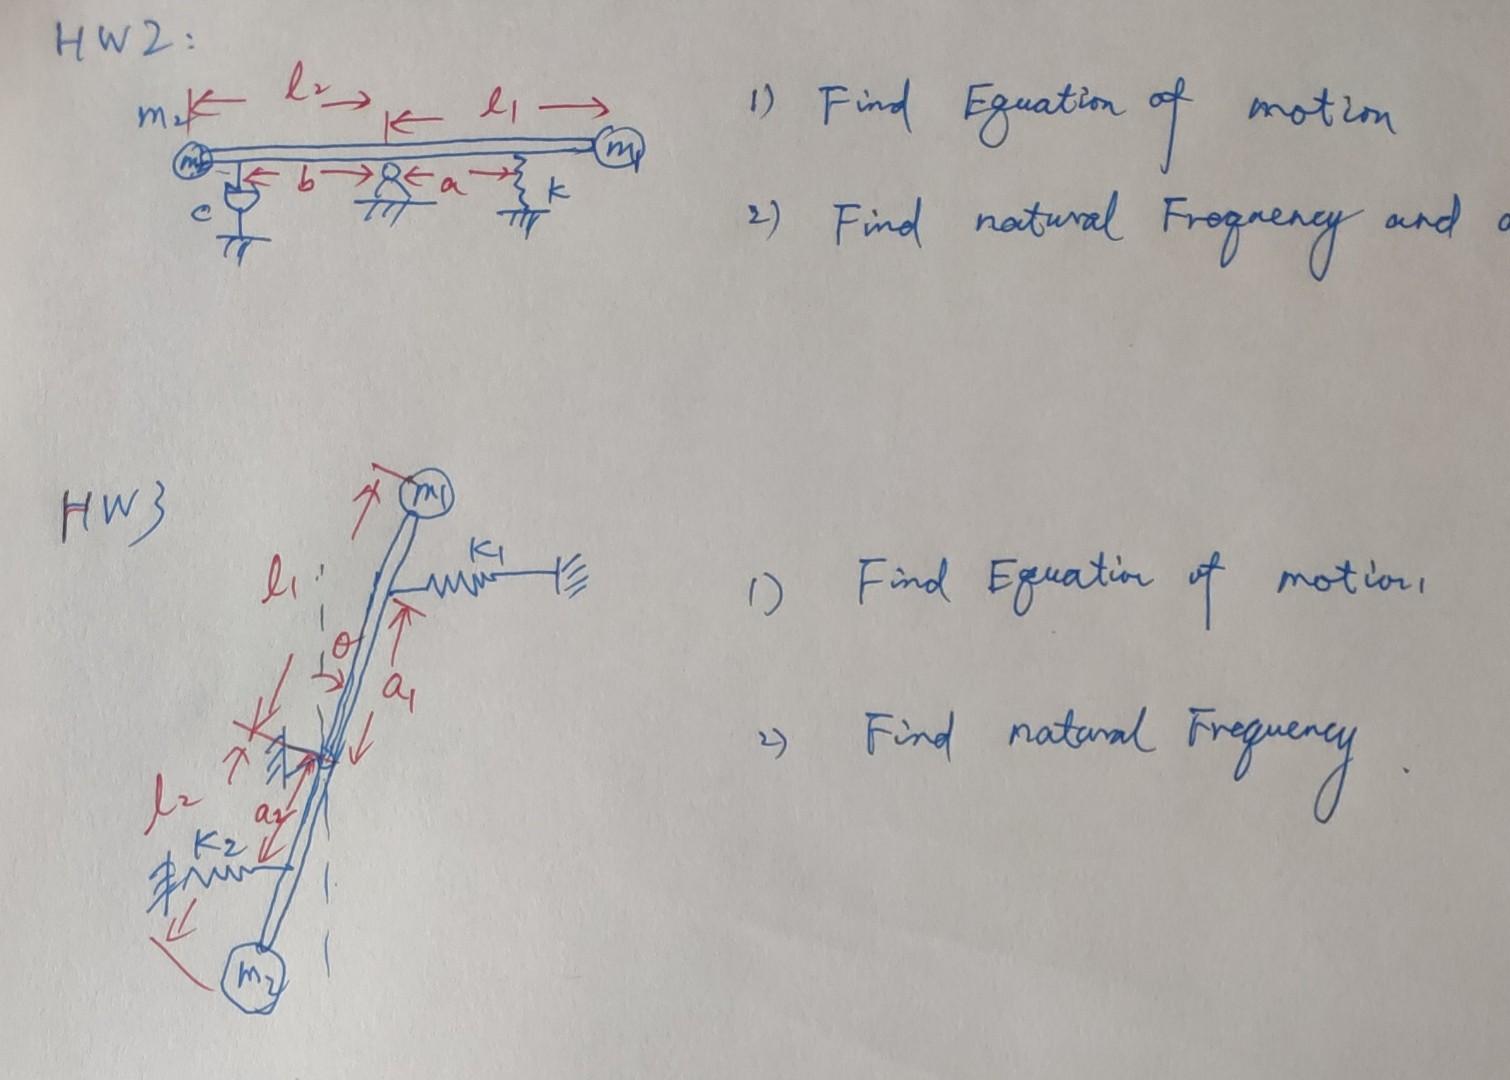 HW2:
m2 l2 l1
m2 m1
b a k
c
1) Find Equation of motion
2) Find natural Frequency and
HW3
m1
l1 K1
θ
a1
l2 a2
K2
m2
1) Find Equation of motion
2) Find natural Frequency.